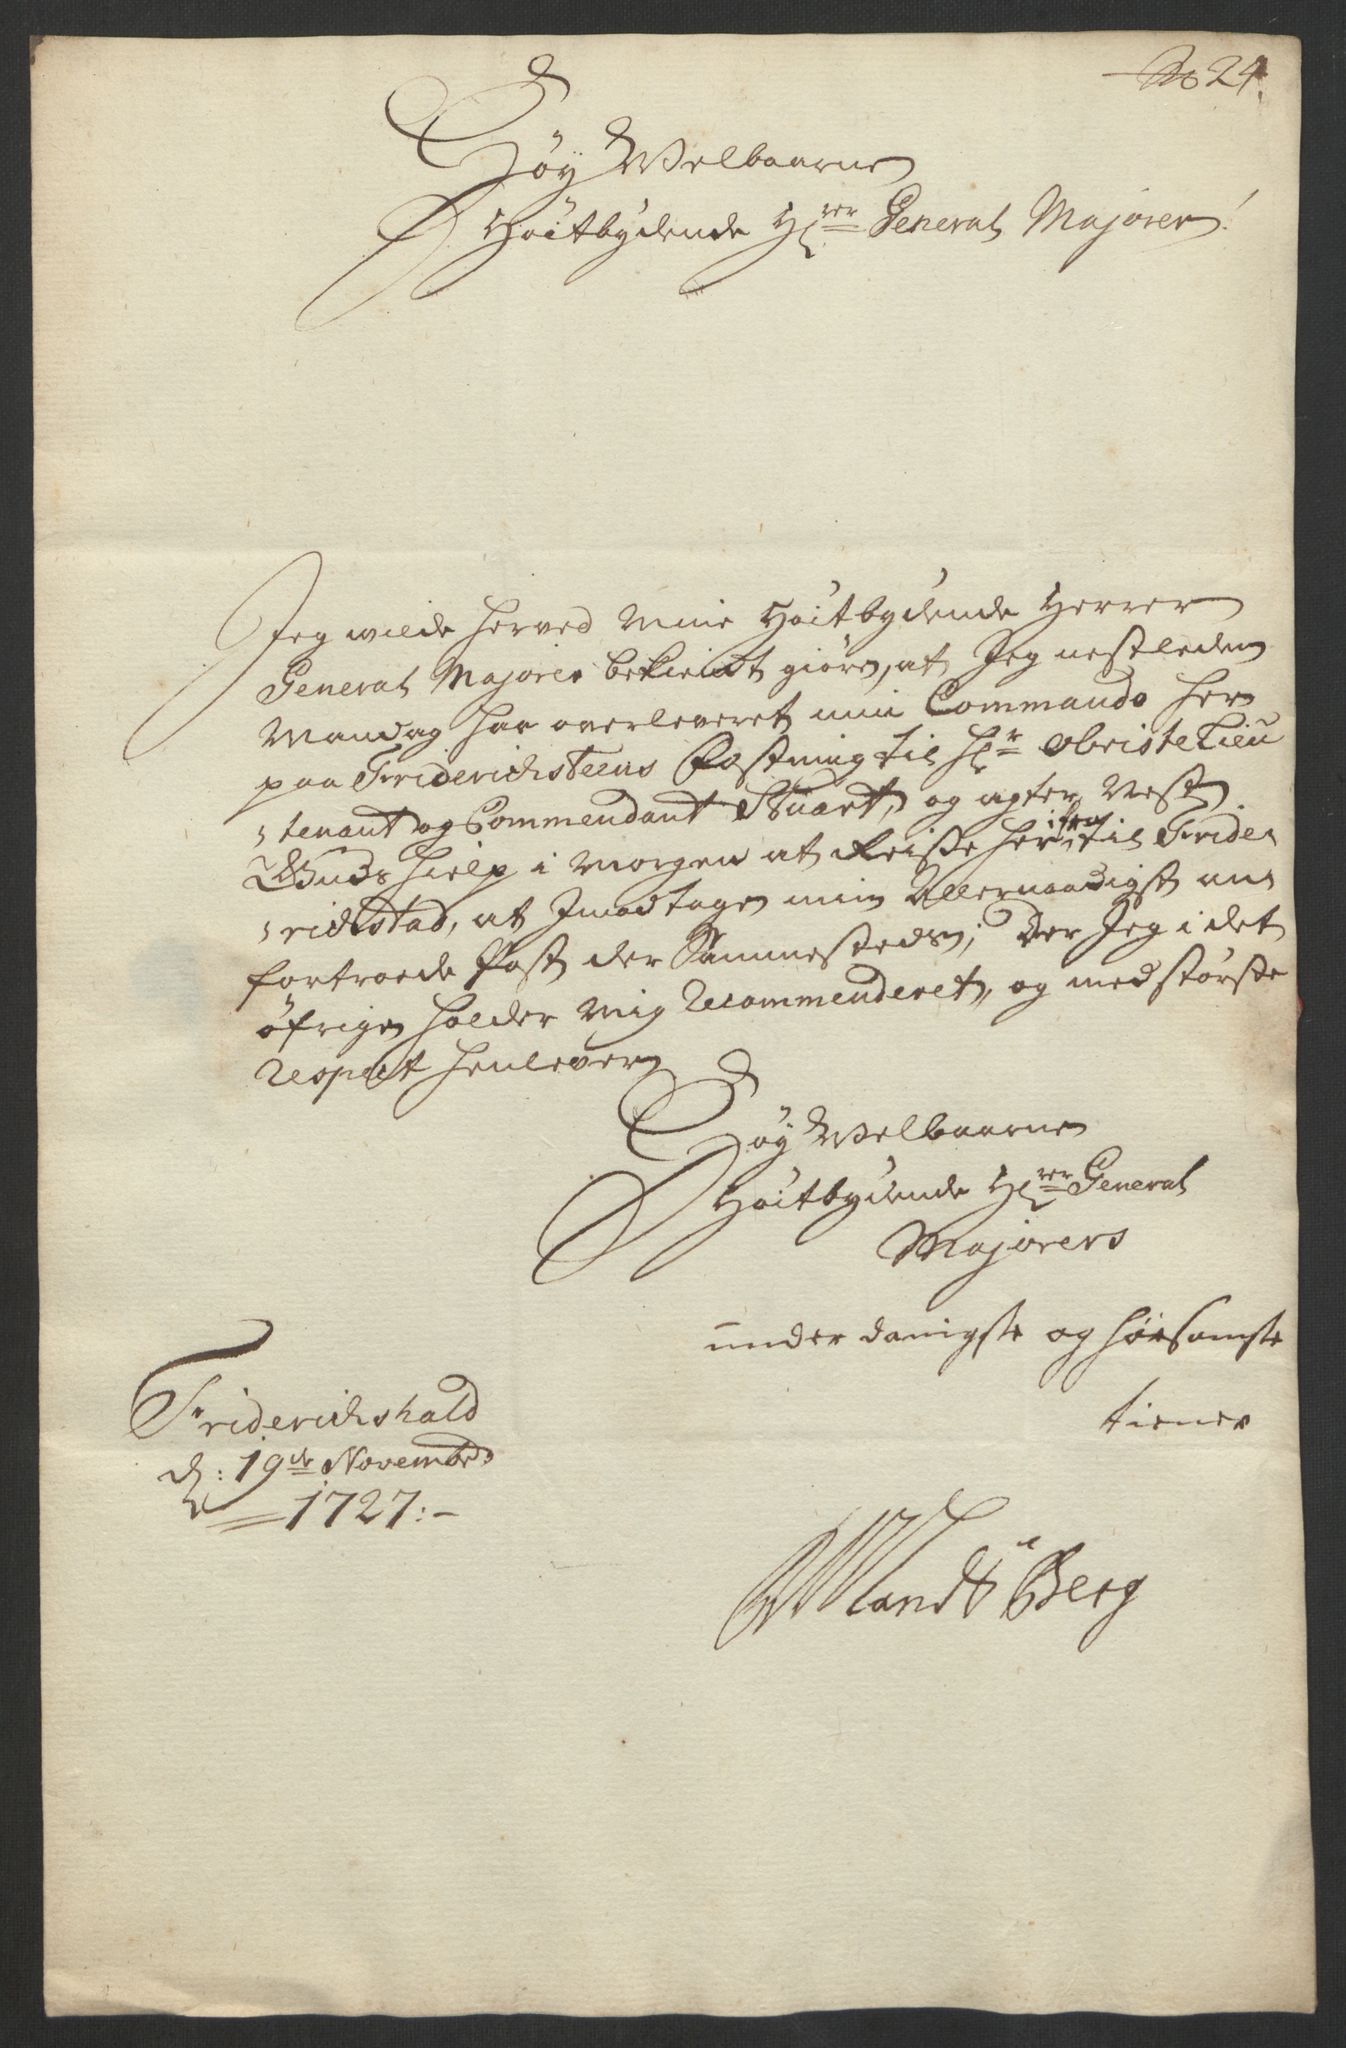 No 24.
Høy Welbaarne
Høitbydende Hrer General Majorer!
Jeg wilde herved Mine Høitbydende Herrer
General Majorer bekiendt giøre, at Jeg nestleden
Mandag har overleveret min Commando her
paa Friderichsteens Fæstning til Hr Obriste Lieu
tenant og Commendant Stuart, og agter Nest
Guds hielp i Morgen at Reise her ifra til Fride
richstad, at Jmodtage min Allernaadigst an
fortroede Post der Sammesteds; Der Jeg i det
øfrige holder Mig Recommenderet, og med største
Respect henlever
Høy Welbaarne
Høitbydende Hrer General
Majorers
under danigste og hørsomste
tiener
Friderichshald
d: 19de Novembr:
1727:-
Landtberg